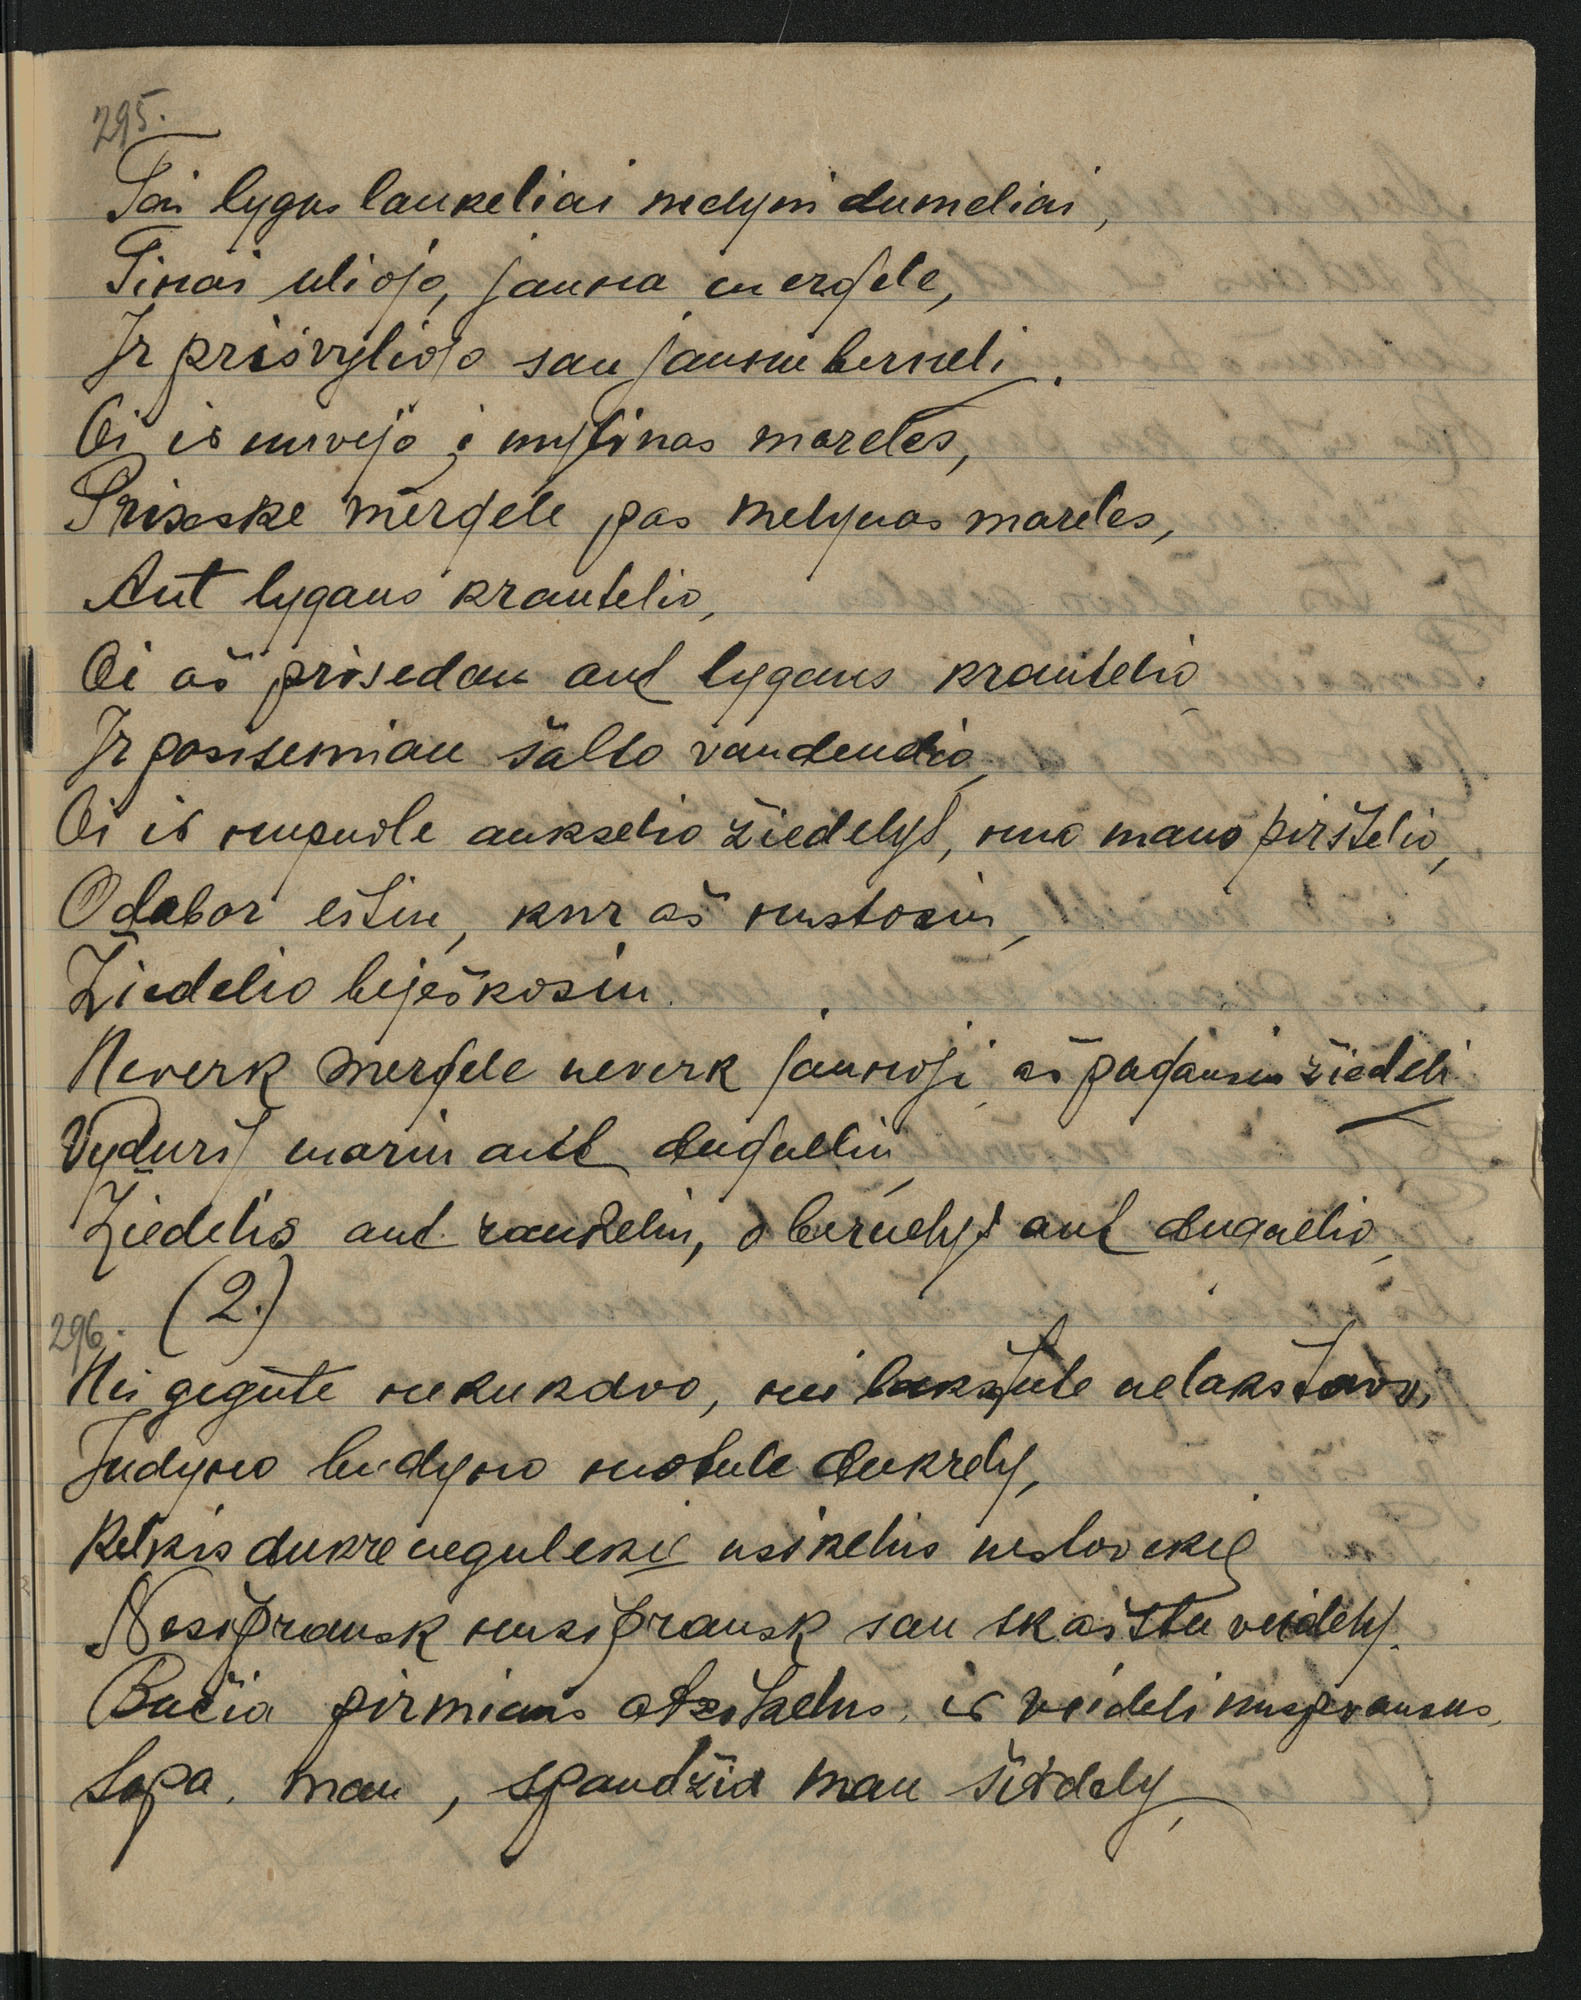 295.
Tai lygus laukeliai melyni dumeliai,
Tinai uliojo, jauna mergele,
Ir prisvyliojo sau jaunu berneli.
Oi ir nuvejo i mylinas mareles,
Priseske mergele pas melynas mareles,
Ant lygaus krantelio,
Oi aš prisedau ant lygaus krantelio
Ir pasisemiau šalto vandendio,
Oi ir nupuole aukselio žiedelys, nuo mano pirštelio,
O dabar eisiu, kur aš nustosiu,
Žiedelio beješkosiu.
Neverk mergele neverk jaunoji, aš pagausiu žiedeli
Vydurij mariu ant dugneliu,
Žiedelis ant rankeliu, o bernelys ant dugnelio,
(2.)
296.
Nei gegute nekukavo, nei lakštute nelakstavo,
Judyno budyno motule dukrely,
Kelkis dukre negulekie usikelus nestovekie
Nesiprausk nusiprausk sau skaistu veidely.
Bučia pirmiaus atsikelus, ir veideli nusprausus,
Sopa. man, spaudžia man širdely,